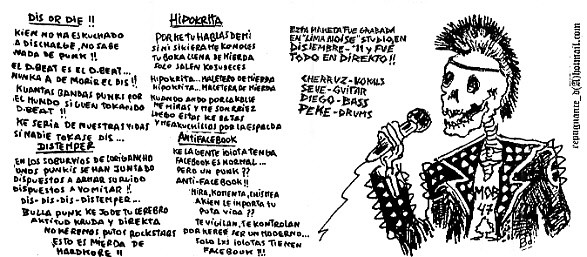 DIS OR DIE !!
KIEN NO HA ESKUCHADO
A DISCHARGE, NO SABE
NADA DE PUNK !!
EL D.BEAT ES EL D.BEAT...
NUNKA A DE MORIR EL DIS !!
KUANTAS BANDAS PUNKS POR
EL MUNDO SIGUEN TOKANDO
D.BEAT !!
KE SERIA DE NUESTRAS VIDAS
SI NADIE TOKASE DIS...
DISTEMPER
EN LOS SUBURVIOS DE
UNOS PUNKIS SE HAN JUNTADO
DISPUESTOS A ARMAR SU RUIDO
DISPUESTOS A VOMITAR !!
DIS- DIS- DIS- DISTEMPER...
BULLA PUNK KE JODE TU CEREBRO
AKTITUD KRUDA Y DIREKTA
NO KEREMOS PUTOS ROCKSTARS
ESTO ES MIERDA DE
HARDKORE !!
HIPOKRITA
POR KE TU HABLAS DE MI
SI NI SIKIERA ME KONOCES
TU BOKA LLENA DE MIERDA
SOLO SALEN
HIPOKRITA... MALETERO DE MIERDA
HIPOKRITA... MALETERA DE MIERDA
KUANDO ANDO POR LA KALLE
ME MIRAS Y ME SONRIES
LUEGO ESTAS KE RAJAS
Y ME AKUCHILLAS POR LA ESPALDA
ANTIFACEBOOK
KE LA GENTE IDIOTA TENGA
FACEBOOK ES NORMAL...
PERO UN PUNK ??
ANTI-FACEBOOK !!
MIRA, KOMENTA,
A KIEN LE IMPORTA TU
PUTA VIDA ??
TE VIGILAN, TE KONTROLAN
POR KERER SER UN MODERNO...
SOLO LOS IDIOTAS TIENEN
FACEBOOK ?!!
ESTA MAKETA FUE GRABADA
EN "LIMA NOISE" STUDIO, EN
DISIEMBRE -'11 Y FUE
TODO EN DIREKTO !!
CHERRVZ- VOKALS
SEVE- GUITAR
DIEGO- BASS
PEKE- DRUMS
MOB
47